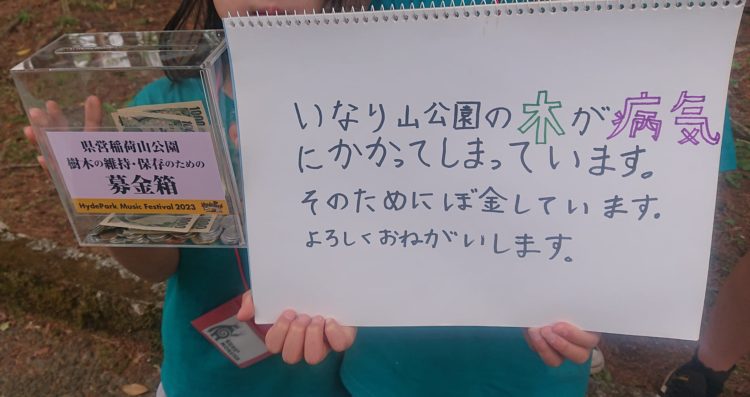 県営稲荷山公園
樹木の維持・保存のための
募金箱
HydePark Music Festival 2023
いなり山公園の木が病気
にかかってしまっています。
そのためにぼ金しています。
よろしくおねがいします。